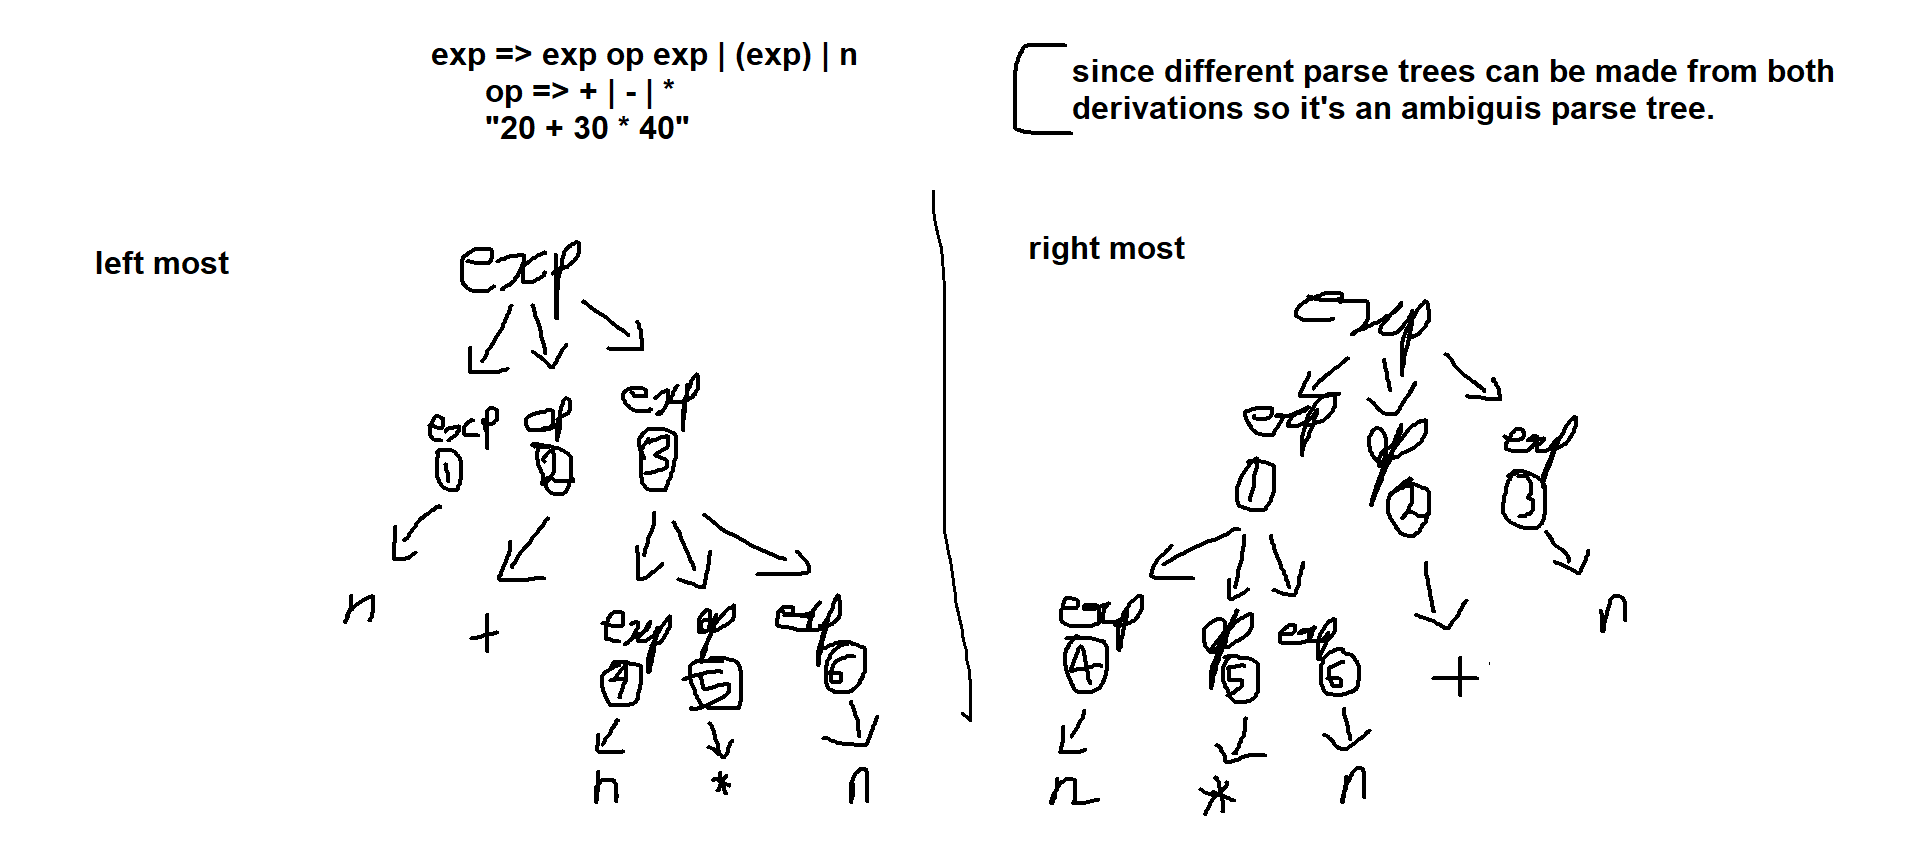 exp => exp op exp | (exp) | n
op => + | - | *
"20 + 30 * 40"
since different parse trees can be made from both
derivations so it's an ambiguis parse tree.
left most
exp
exp op exp
1 2 3
n + exp op exp
4 5 6
n * n
right most
exp
exp op exp
1 2 3
exp op exp n
4 5 6 +
n * n